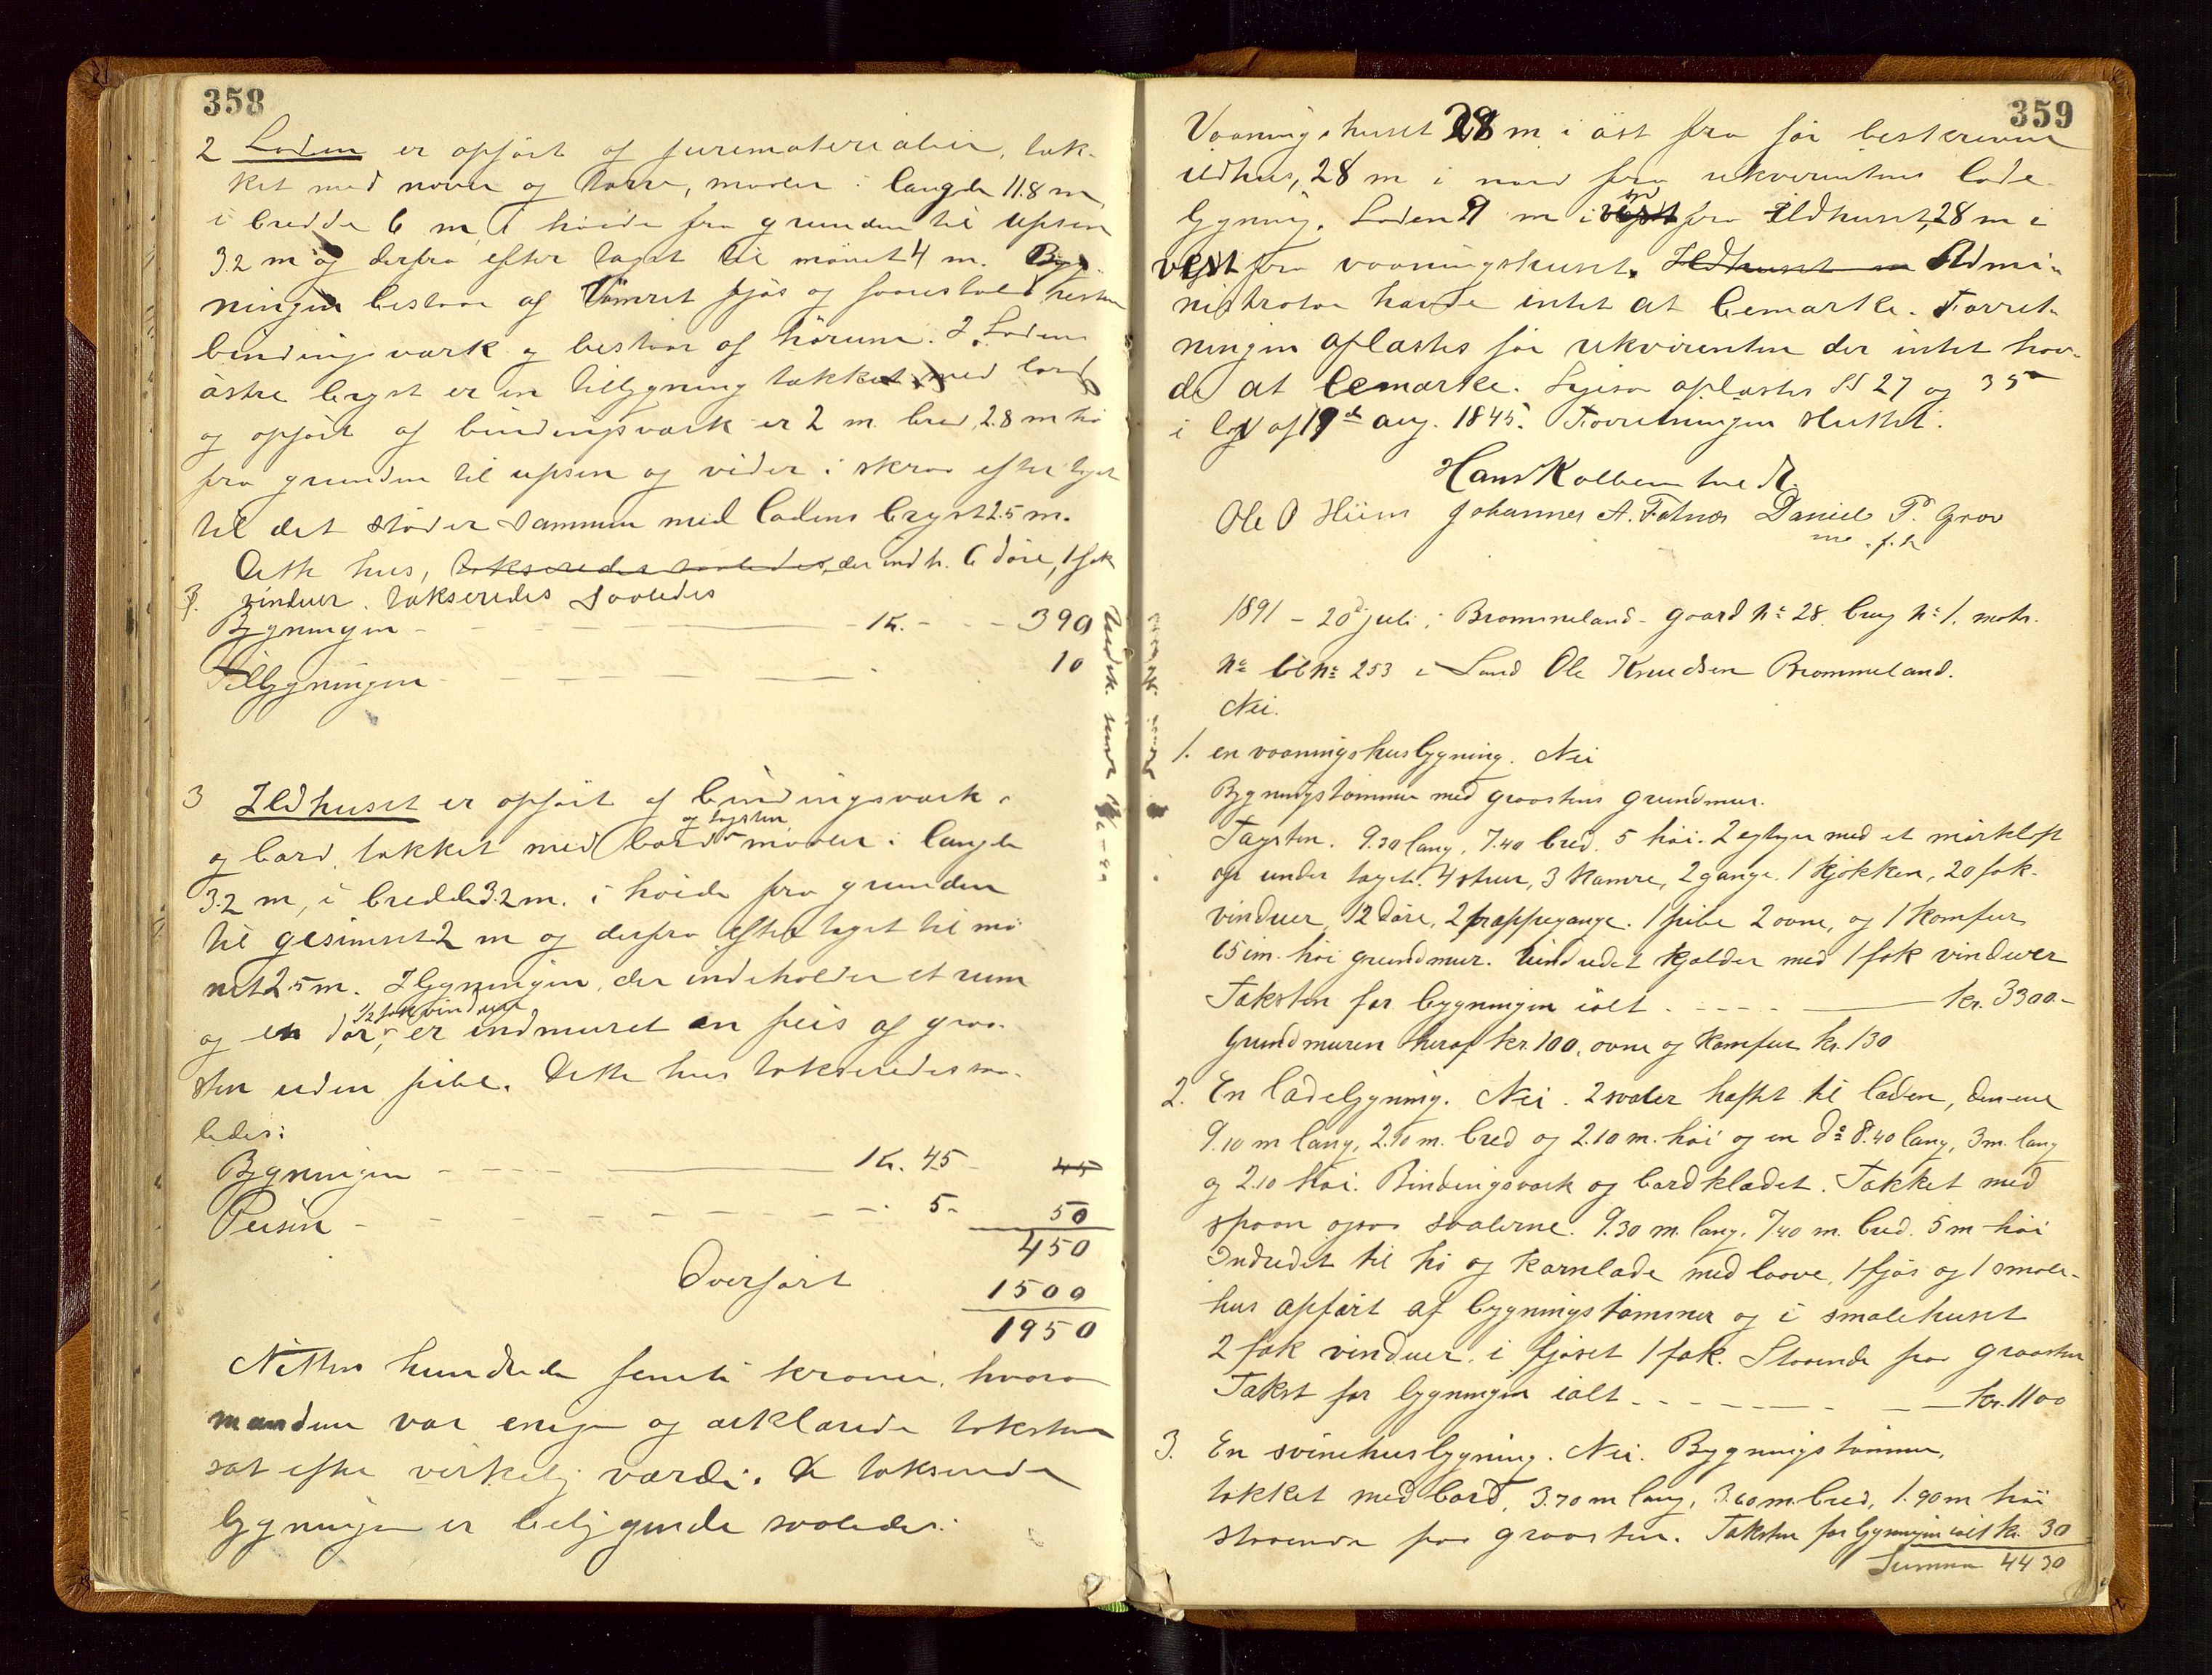 358
2 Laden er opført af furematerialier, tæk-
ket med næver og torv, maaler i længde 11.8 m,
i bredde 6 m, i høide fra grunden til upsen
3.2 m og derfra efter taget til mønet 4 m. Byg-
ningen bestaar af tømret fjøs og faarestald resten
bindingsværk og bestaar af hørum. I Ladens
østre bryst er en tilbygning tækket med bord
og opført af bindingsværk er 2 m. bred, 2.8 m hø
fra grunden til upsen og vider i skraa efter taget
til det støder sammen med ladens bryst 2.5 m.
Dette hus, takseredes saaledes, der indh. 6 døre, 1 fak
vinduer. takseredes saaledes
Bygningen - Kr. - 390
Tilbygningen - 10
3 Ildhuset er opført af bindingsværk
og bord, tækket med bord og tagsten, maaler i længde
3.2 m, i bredde 3.2 m. i høide fra grunden
til gesimset 2 m og derfra efter taget til mø
net 2.5 m. I bygningen, der indeholder et rum
og en dør, 1/2 fak vinduer er indmuret en peis af graa-
sten uden pibe. Dette hus takseredes saa-
ledes:
Bygningen - Kr. 45 - 45
Peisen - 5 - 50
450
Overført 1500
1950
Nitten hundrede femti kroner, hvorom
mændene var enige og erklærede taksten
sat efter virkelig værdi. De takserede
bygninger er beliggende saaledes:
359
Vaaningshuset 28 m i øst fra før beskrevne
ildhus, 28 m i nord fra rekvirentens lade
bygning. Laden 9 m i nd fra Ildhuset, 28 m i
vest fra vaaningshuset. Ildhuset Admi-
nistrator havde intet at bemærke. Forret-
ningen oplæstes for rekvirenten der intet hav-
de at bemærke. Ligesaa oplæstes §§ 27 og 35
i lov af 19de aug. 1845. Forretningen sluttet.
Hans Kolbentvedt.
Ole O Hiim Johannes A. Fatnes Daniel P. Grov
m. f. p.
1891 - 20de juli, Brommeland - gaard No 28. brug No 1. matr.
No lb No 253 i Sand Ole Knudsen Brommeland.
Nei.
1. en vaaningshusbygning. Nei
Bygningstømmer med graastens grundmur.
Tagsten. 9.30 lang, 7.40 bred. 5 høi. 2 etager med et mørkloft
op under taget. 4 stuer, 3 kamre, 2 gange, 1 kjøkken, 20 fak-
vinduer, 12 døre, 2 trappegange. 1 pibe 2 ovne, og 1 komfur
65 cm. høi grundmur. Indredet kjælder med 1 fak vinduer
Taksten for bygningen ialt - kr. 3300.-
Grundmuren heraf kr. 100, ovne og komfur kr. 130
2. En ladebygning. Nei. 2 svaler hæftet til laden, den ene
9.10 m lang, 2.90 m. bred og 2.10 m. høi og en do 8.40 lang, 3 m. lang
og 2.10 høi. Bindingsværk og bordklædet. Tækket med
spaan ogsaa svalerne. 9.30 m. lang. 7.40 m. bred. 5 m høi
Indredet til hø og kornlade med loove, 1 fjøs og 1 smale-
hus opført af bygningstømmer og i smalehuset
2 fak vinduer, i fjøset 1 fak. Staaende paa graasten
Takst for bygningen ialt - kr. 1100
3. En svinehusbygning. Nei. Bygningstømmer,
tækket med bord, 3.70 m lang, 3.60 m. bred, 1.90 m høi
staaende paa graasten. Taksten for bygningen ialt kr. 30
Summa 4430